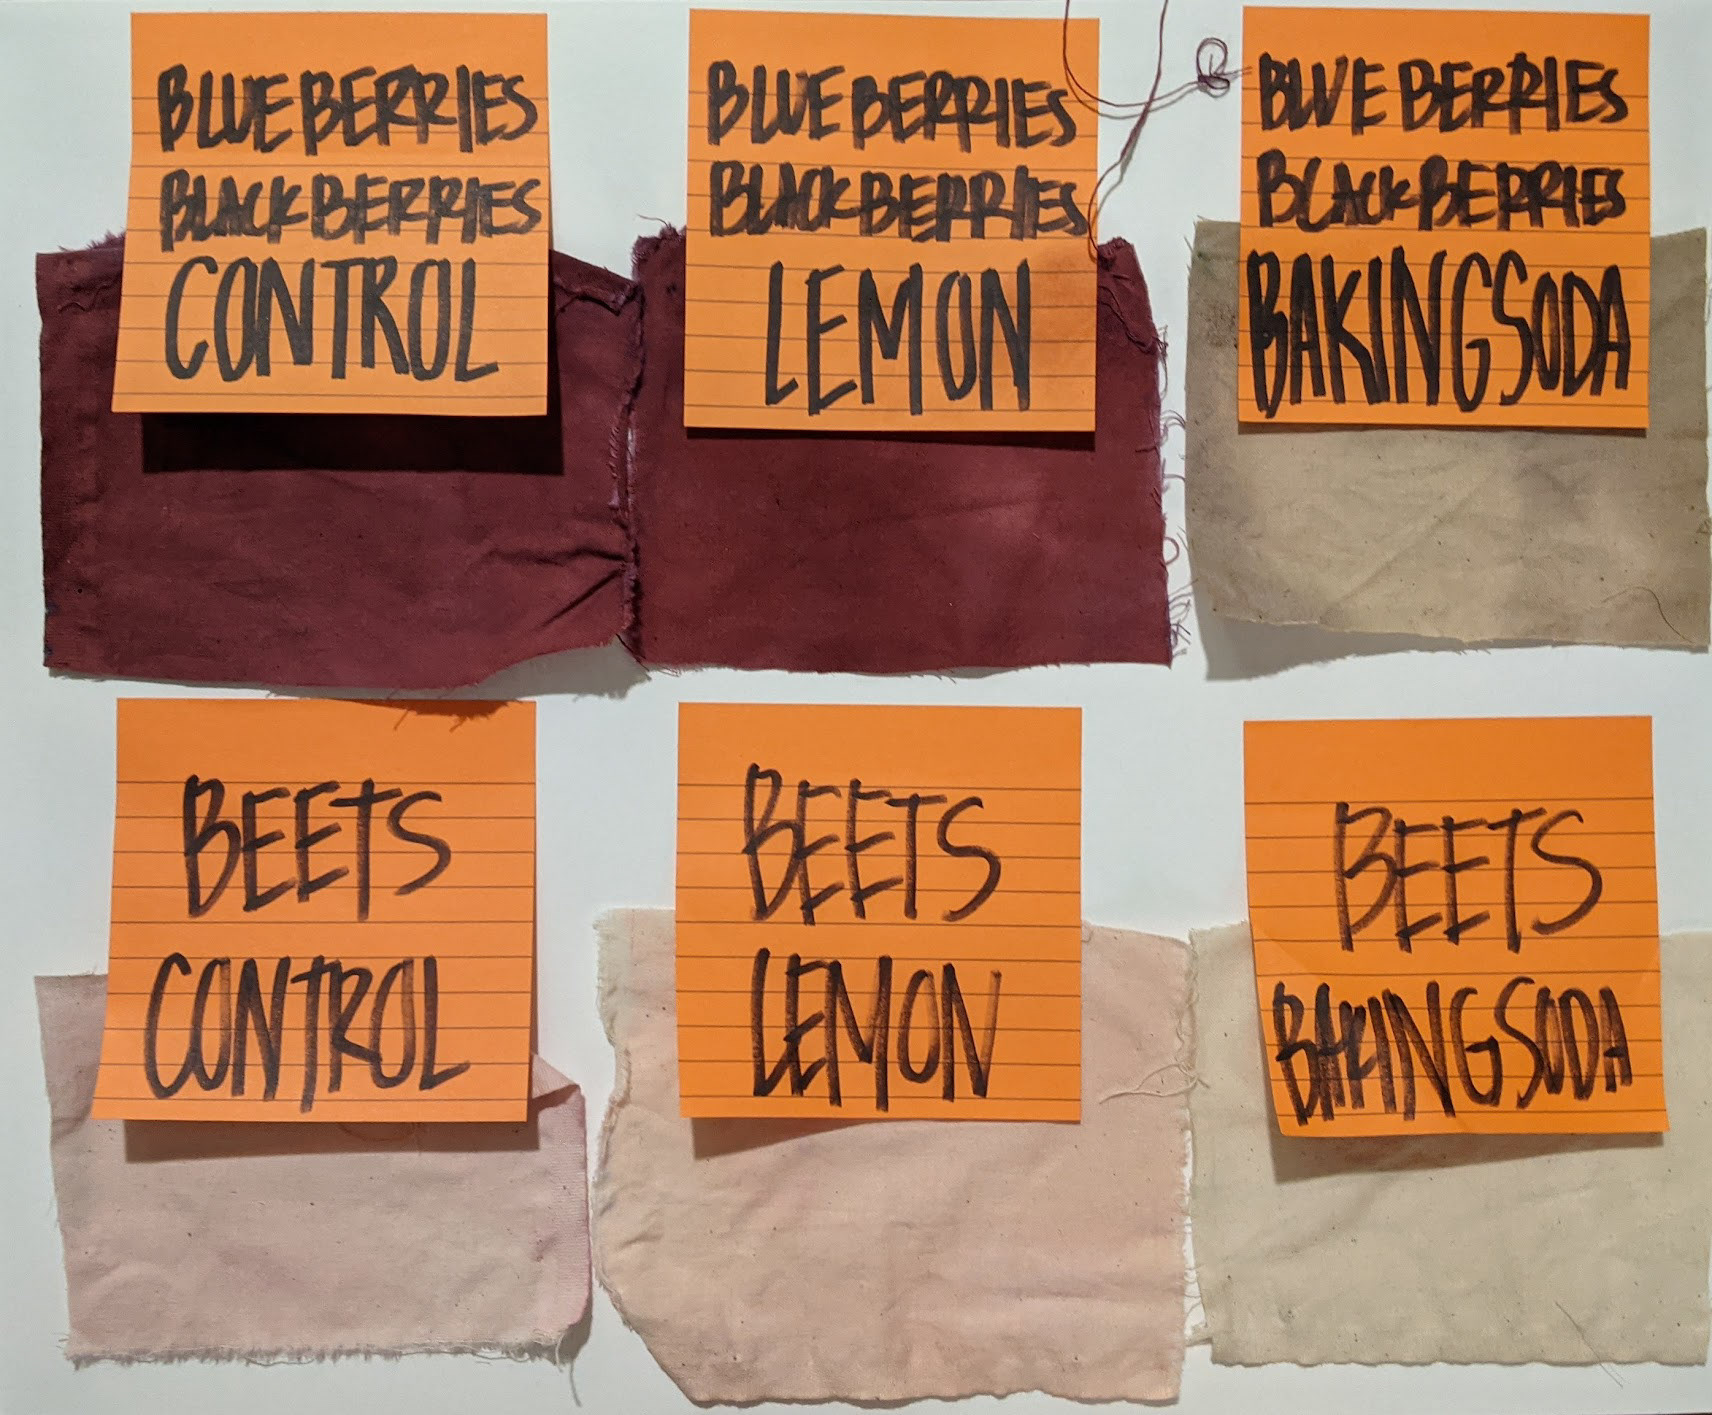 BLUEBERRIES
BLACKBERRIES
CONTROL
BLUEBERRIES
BLACKBERRIES
LEMON
BLUEBERRIES
BLACKBERRIES
BAKING SODA
BEETS
CONTROL
BEETS
LEMON
BEETS
BAKING SODA